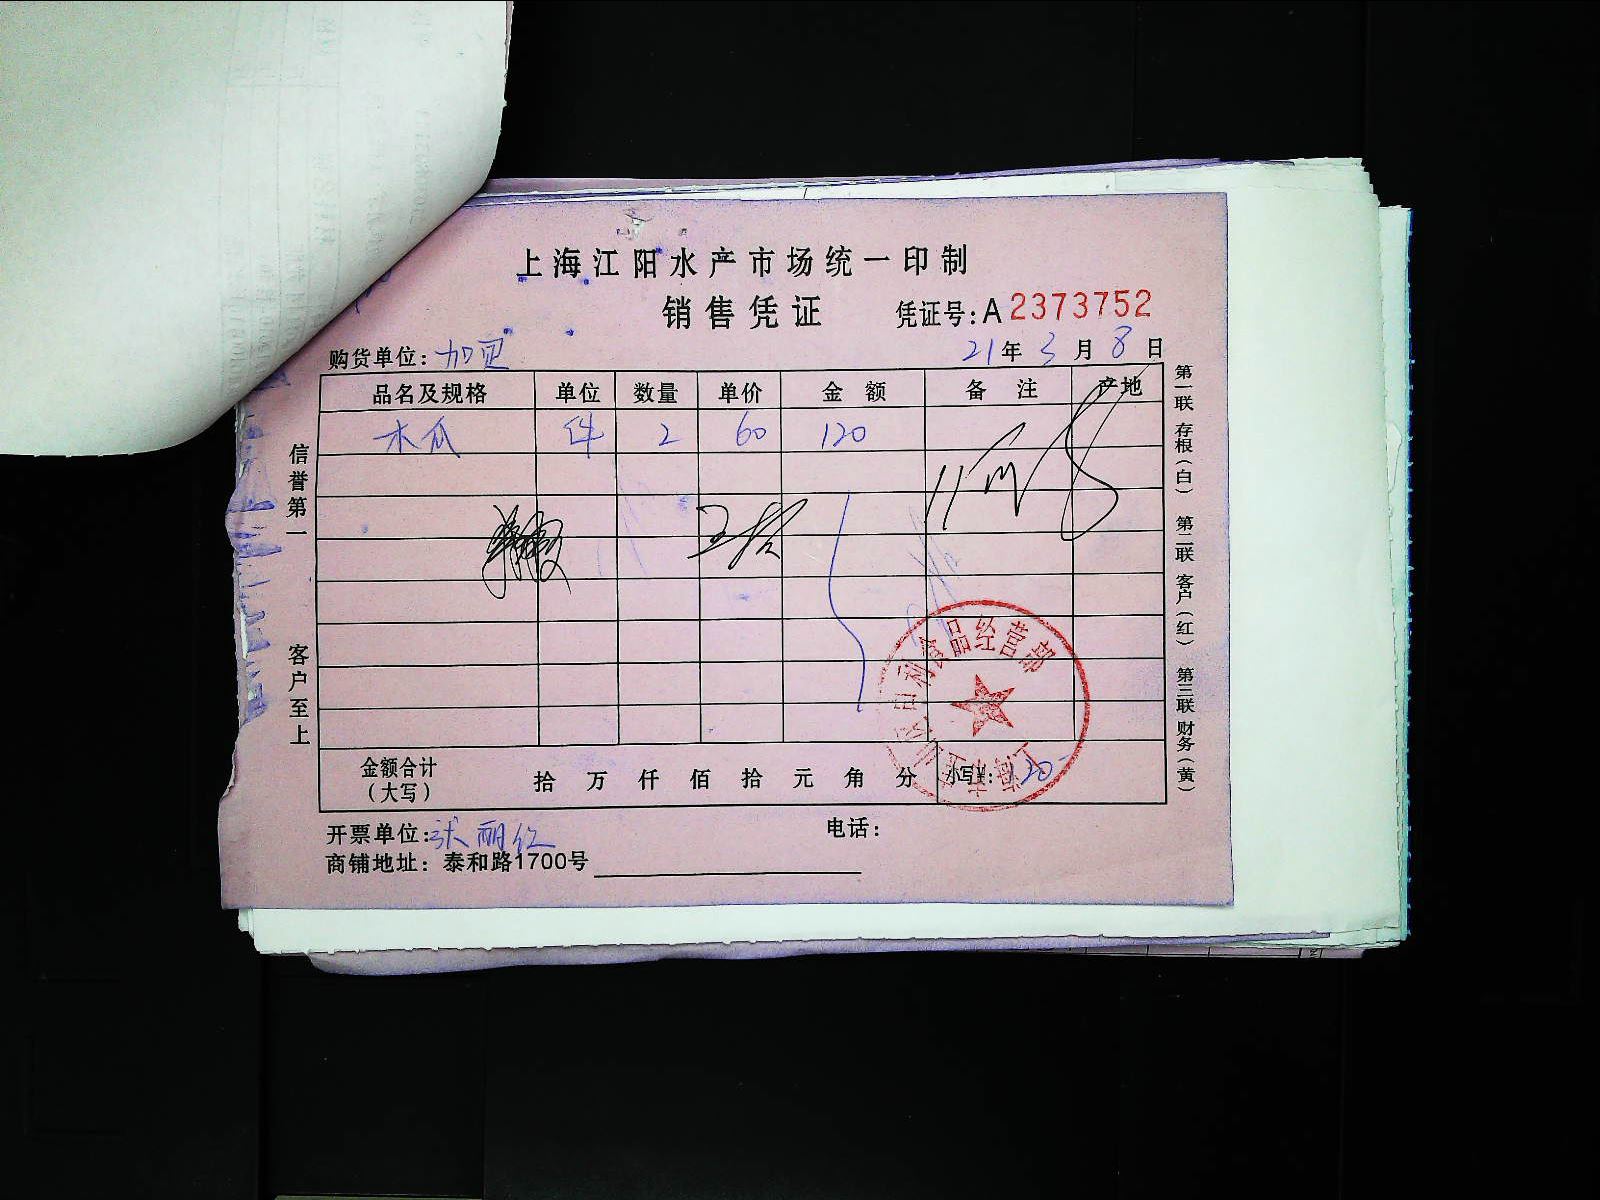 上海江阳水产市场统一印制
销售凭证 凭证号:A2373752
购货单位: 21年3月8日
品名及规格 单位 数量 单价 金额 备注 产地
木瓜 件 2 60 120
信誉第一
客户至上
金额合计(大写) 拾 万 仟 佰 拾 元 角 分 小写¥:120-
开票单位:张丽红 电话:
商铺地址: 泰和路1700号
第一联 存根(白) 第二联 客户(红) 第三联 财务(黄)
食品经营部